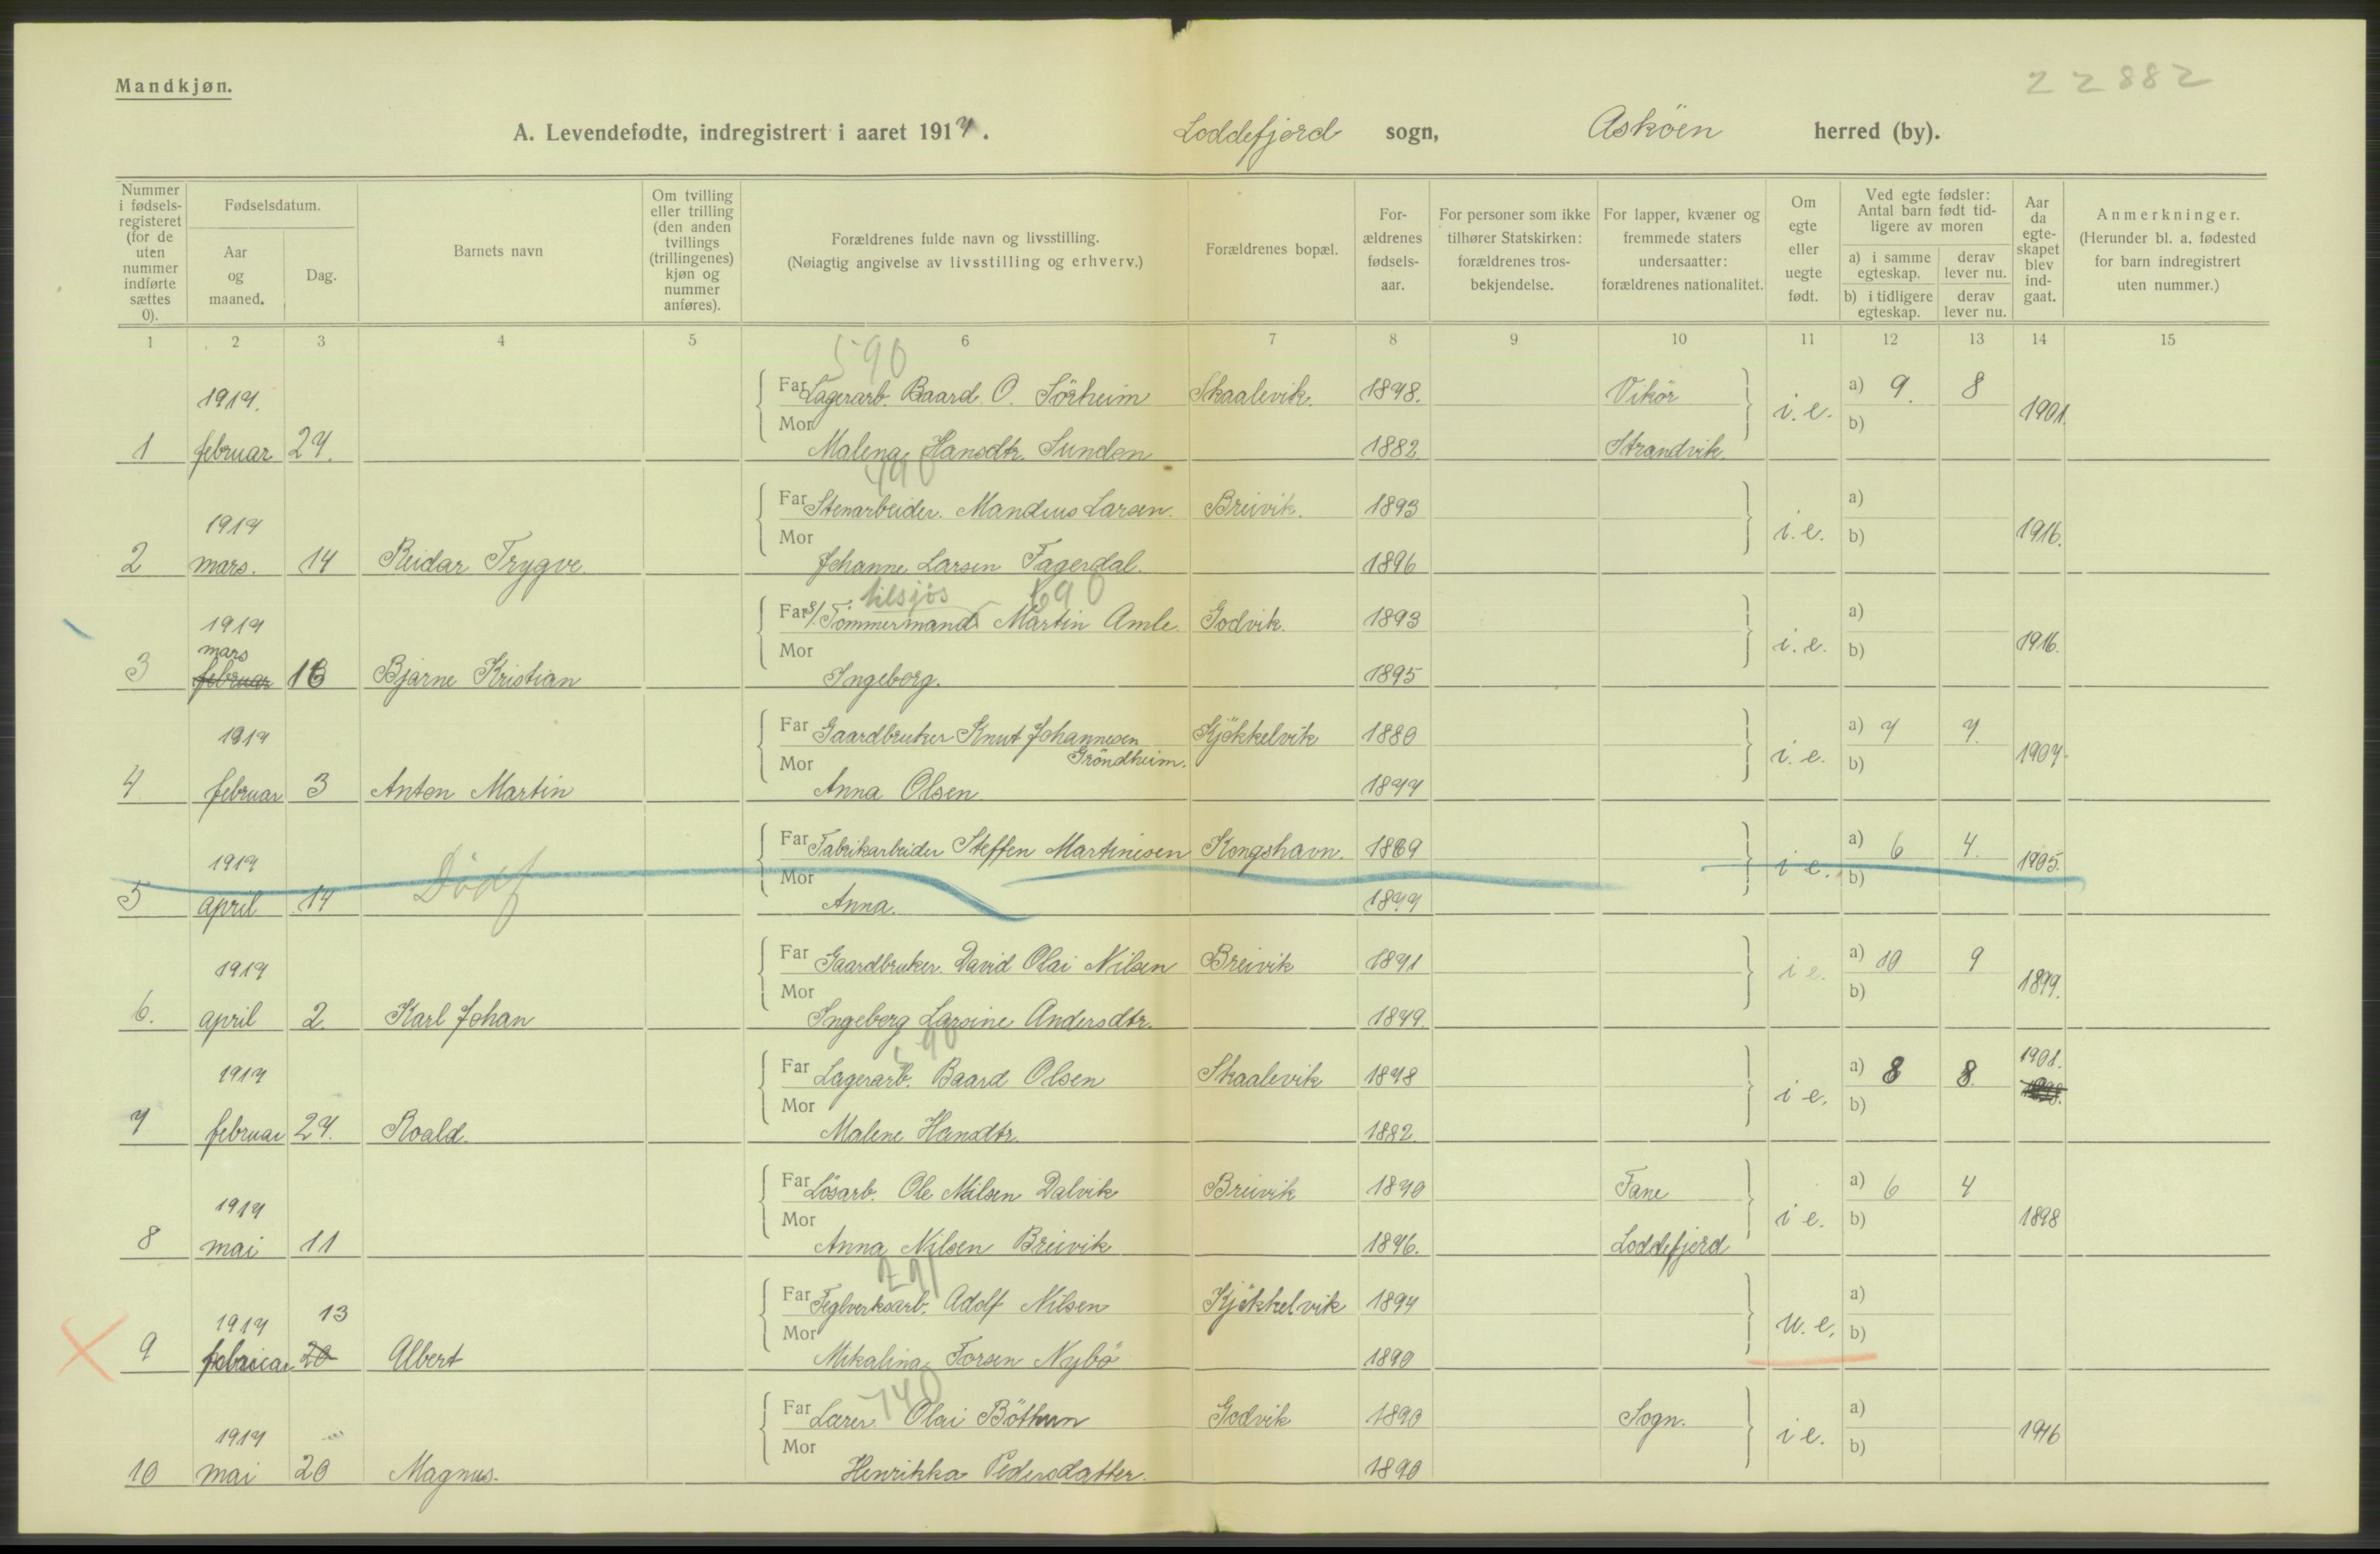 Mandkjøn.
22882
A. Levendefødte, indregistrert i aaret 1917. Loddefjord sogn, Askøen herred (by).
Nummer i fødselsregisteret (for de uten nummer indførte sættes 0).
Fødselsdatum.
Aar og maaned.
Dag.
Barnets navn
Om tvilling eller trilling (den anden tvillings (trillingenes) kjøn og nummer anføres).
Forældrenes fulde navn og livsstilling.
(Nøiagtig angivelse av livsstilling og erhverv.)
Forældrenes bopæl.
Forældrenes fødselsaar.
For personer som ikke tilhører Statskirken: forældrenes trosbekjendelse.
For lapper, kvæner og fremmede staters undersaatter: forældrenes nationalitet.
Om egte eller uegte født.
Ved egte fødsler: Antal barn født tidligere av moren
a) i samme egteskap. derav lever nu.
b) i tidligere egteskap. derav lever nu.
Aar da egteskapet blev indgaat.
Anmerkninger.
(Herunder bl. a. fødested for barn indregistrert uten nummer.)
1 2 3 4 5 6 7 8 9 10 11 12 13 14 15
590
1917. Far Lagerarb. Baard O. Sörheim Skaalevik. 1878. Vikör i. e. a) 9. 8 1901.
1 februar 27. Mor Malena Hansdtr. Sunden 1882 Strandvik. b)
490
1917 Far Stenarbeider. Mandius Larsen. Breivik. 1893 i. e. a) 1916.
2 mars. 14 Reidar Trygve Mor Johanne Larsen Fagerdal. 1896 b)
tilsjös 690
1917 Far s/. Tömmermand Martin Amle. Godvik. 1893 i. e. a) 1916.
mars
3 februar 13 Bjarne Kristian Mor Ingeborg. 1895 b)
1917 Far Gaardbruker Knut Johannesen Gröndheim. Kjökkelvik 1880 i. e. a) 7 7. 1907.
4 februar 3 Anton Martin Mor Anna Olsen 1877 b)
1917 Far Fabrikarbeider Steffen Martinesen Kongshavn. 1869 i e. a) 6 4. 1905.
5 april 14 Dödf Mor Anna. 1877 b)
1917 Far Gaardbruker. David Olai Nilsen Breivik 1871 i e. a) 10 9 1899.
6. april 2. Karl Johan Mor Ingeborg Larsine Andersdtr. 1879. b)
590
1917 Far Lagerarb. Baard Olsen Skaalevik 1878 i e. a) 8 8. 1901.
7 februar 27. Roald. Mor Malene Hansdtr. 1882. b)
1917 Far Lösarb. Ole Nilsen Dalvik Breivik 1870 Fane i e. a) 6 4 1898
8 mai 11 Mor Anna Nilsen Breivik 1876. Loddefjord b)
291
1917 13 Far Teglverksarb. Adolf Nilsen Kjökkelvik 1894 u. e. a)
9 februar 20 Albert Mor Mikalina Torsen Nybö 1890 b)
740
1917 Far Lærer. Olai Böthun Godvik 1890 Sogn. i e. a) 1916
10 mai 20 Magnus. Mor Henrikka Pedersdatter. 1890 b)